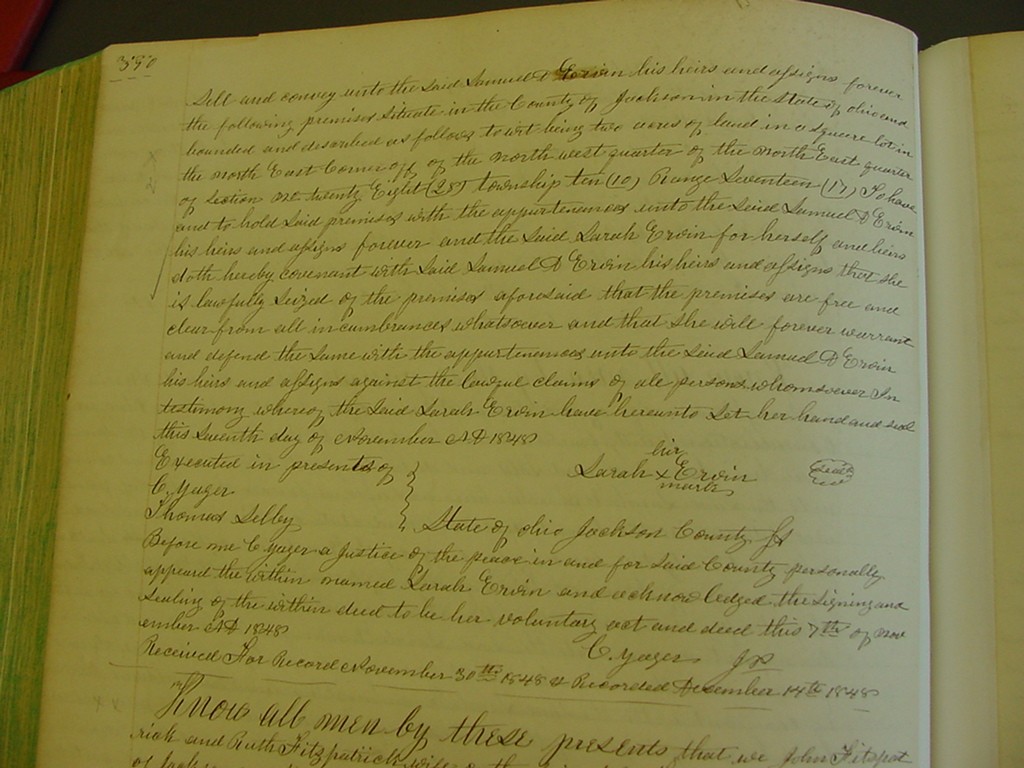 350
Sell and convey unto the said Samuel D Ervin his heirs and assigns forever
the following premises situate in the County of Jackson in the State of ohio and
bounded and described as follows to wit being two acres of land in a square lot in
the North East Corner off of the North west quarter of the North East quarter
of section No twenty Eight (28) township ten (10) Range Seventeen (17) To have
and to hold said premises with the appurtenances unto the said Samuel D Ervin
his heirs and assigns forever and the said Sarah Ervin for herself and heirs
doth hereby covenant with said Samuel D Ervin his heirs and assigns that she
is lawfully seized of the premises aforesaid that the premises are free and
clear from all incumbrances whatsoever and that she will forever warrant
and defend the same with the appurtenances unto the said Samuel D Ervin
his heirs and assigns against the lawful claims of all persons whomsoever In
testimony whereof the said Sarah Ervin have hereunto set her hand and seal
this seventh day of November AD 1848
Executed in presents of
C. Yager
Thomas Selby
her
Sarah x Ervin
mark
Seal
State of ohio Jackson County Ss
Before me C Yager a Justice of the peace in and for said County personally
appeard the within named Sarah Ervin and acknowledged the signing and
sealing of the within deed to be her voluntary act and deed this 7th of Nov
ember AD 1848
C. Yager JP
Received For Record November 30th 1848 & Recorded December 14th 1848
Know all men by these presents that we John Fitzpat
rick and Ruth Fitzpatrick wife